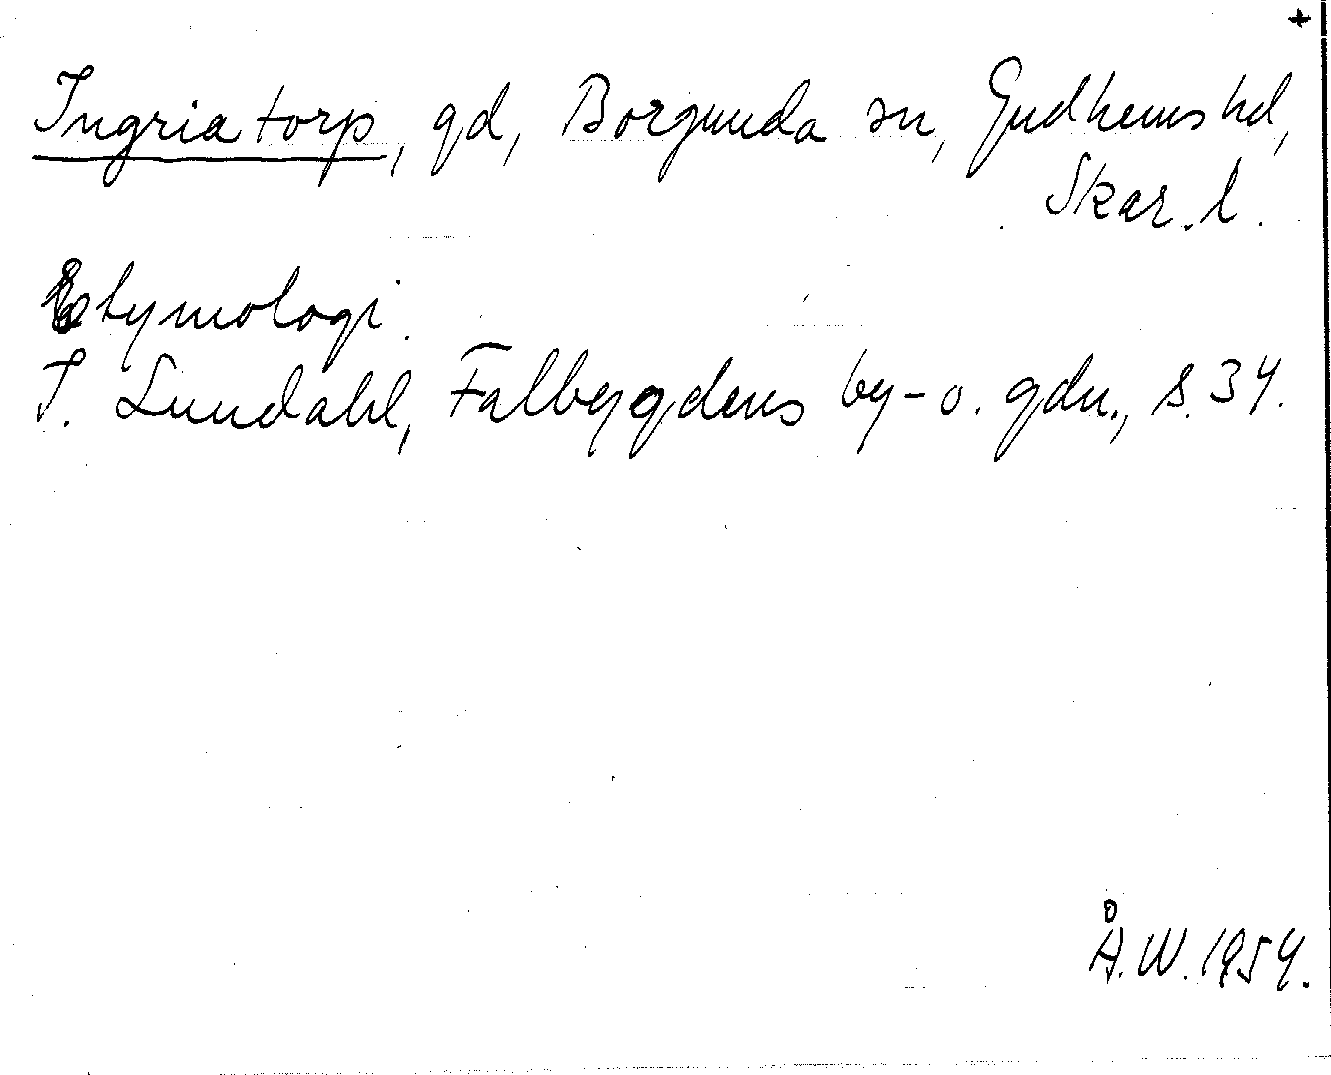 +
Ingriatorp, gd, Borgunda sn, Gudhems hd,
Skar. l.
Etymologi.
I. Lundahl, Falbygdens by- o. gdn., s. 34.
Å.W. 1954.